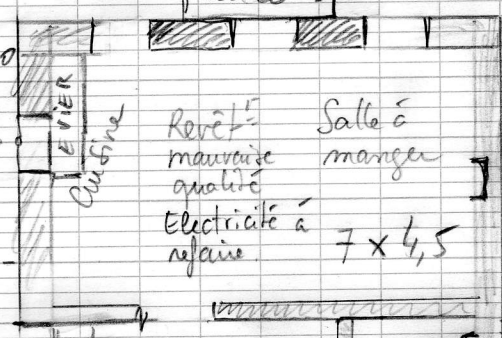 EVIER
Cuisine
Revêt^t
mauvaise
qualité
Electricité à
refaire.
Salle à
manger
7 x 4,5